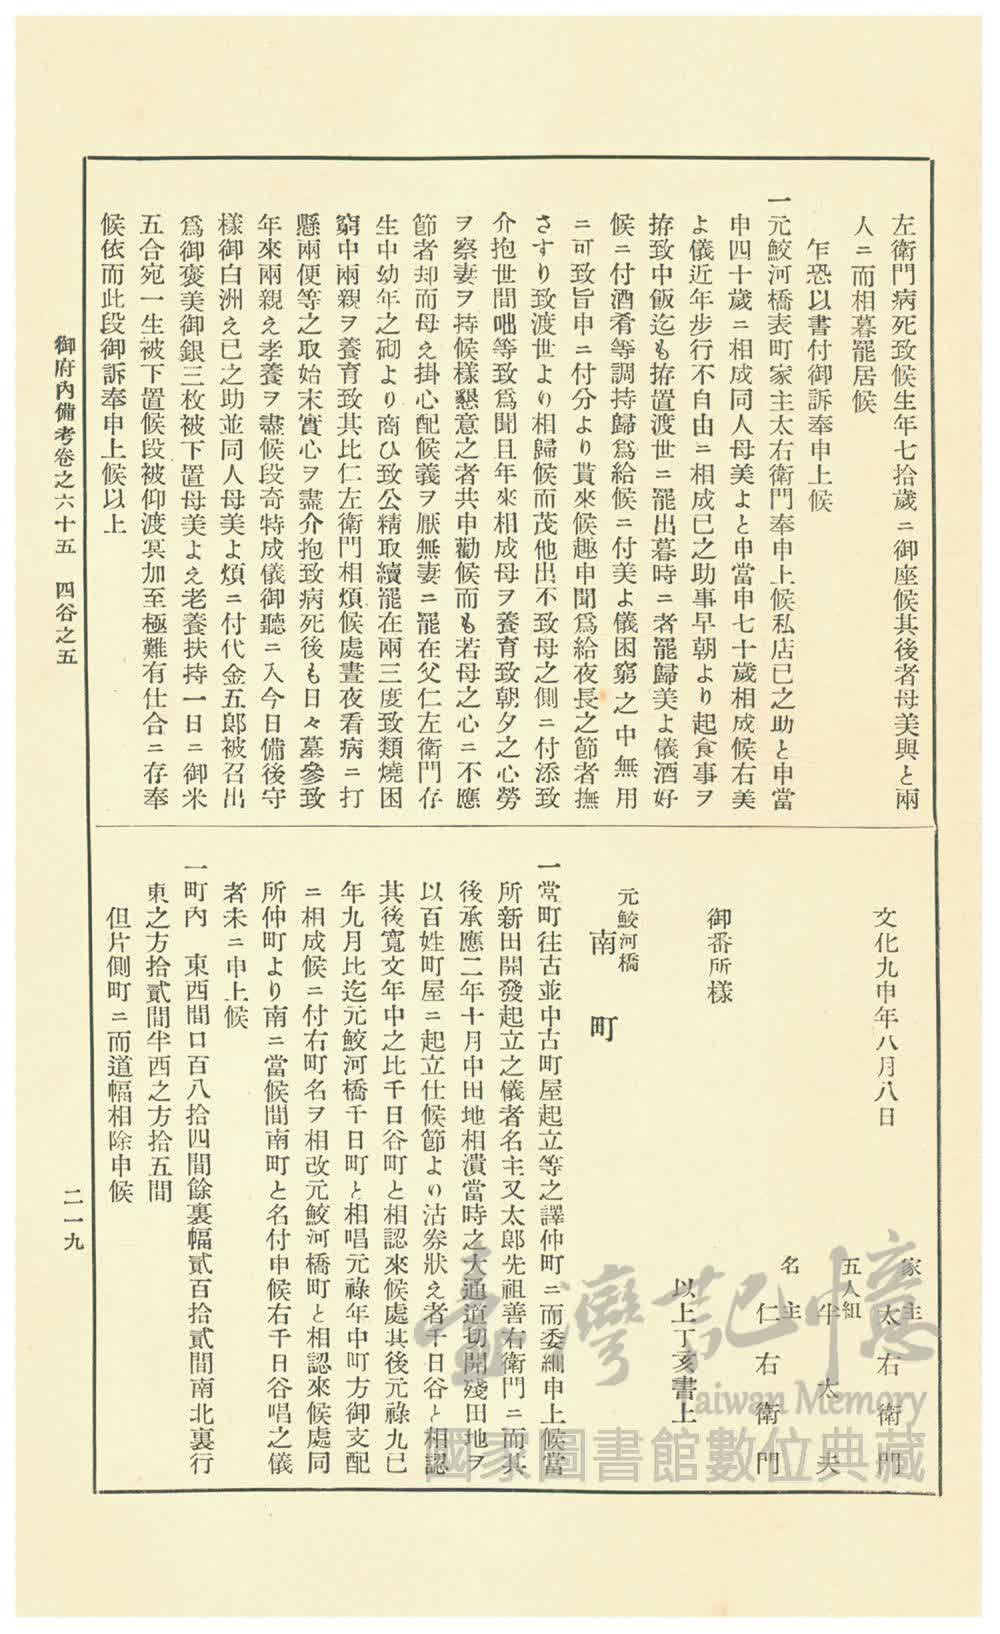 左衛門病死致候生年七拾歲ニ御座候其後者母美與と兩
人ニ而相暮罷居候
乍恐以書付御訴奉申上候
一元鮫河橋表町家主太右衛門奉申上候私店巳之助と申當
申四十歲ニ相成同人母美よと申當申七十歲相成候右美
よ儀近年步行不自由ニ相成巳之助事早朝より起食事ヲ
拵致中飯迄も拵置渡世ニ罷出暮時ニ者罷歸美よ儀酒好
候ニ付酒肴等調持歸爲給候ニ付美よ儀困窮之中無用
ニ可致旨申ニ付分より貰來候趣申聞爲給夜長之節者撫
さすり致渡世より相歸候而茂他出不致母之側ニ付添致
介抱世間咄等致爲聞且年來相成母ヲ養育致朝夕之心勞
ヲ察妻ヲ持候樣懇意之者共申勸候而も若母之心ニ不應
節者却而母え掛心配候義ヲ厭無妻ニ罷在父仁左衛門存
生中幼年之砌より商ひ致公精取續罷在兩三度致類燒困
窮中兩親ヲ養育致其比仁左衛門相煩候處晝夜看病ニ打
懸兩便等之取始末實心ヲ盡介抱致病死後も日々墓參致
年來兩親え孝養ヲ盡候段奇特成儀御聽ニ入今日備後守
樣御白洲え巳之助並同人母美よ煩ニ付代金五郎被召出
爲御褒美御銀三枚被下置母美よえ老養扶持一日ニ御米
五合宛一生被下置候段被仰渡冥加至極難有仕合ニ存奉
候依而此段御訴奉申上候以上
文化九申年八月八日
家主
太右衛門
五人組
半太夫
名主
仁右衛門
御番所樣
以上丁亥書上
元鮫河橋
南町
一當町往古並中古町屋起立等之譯仲町ニ而委細申上候當
所新田開發起立之儀者名主又太郎先祖善右衛門ニ而其
後承應二年十月中田地相潰當時之大通道切開殘田地ヲ
以百姓町屋ニ起立仕候節より沽券狀え者千日谷と相認
其後寬文年中之比千日谷町と相認來候處其後元祿九巳
年九月比迄元鮫河橋千日町と相唱元祿年中町方御支配
ニ相成候ニ付右町名ヲ相改元鮫河橋町と相認來候處同
所仲町より南ニ當候間南町と名付申候右千日谷唱之儀
者未ニ申上候
一町內 東西間口百八拾四間餘裏幅貳百拾貳間南北裏行
東之方拾貳間半西之方拾五間
但片側町ニ而道幅相除申候
御府內備考卷之六十五 四谷之五
二一九
臺灣記憶
Taiwan Memory
國家圖書館數位典藏